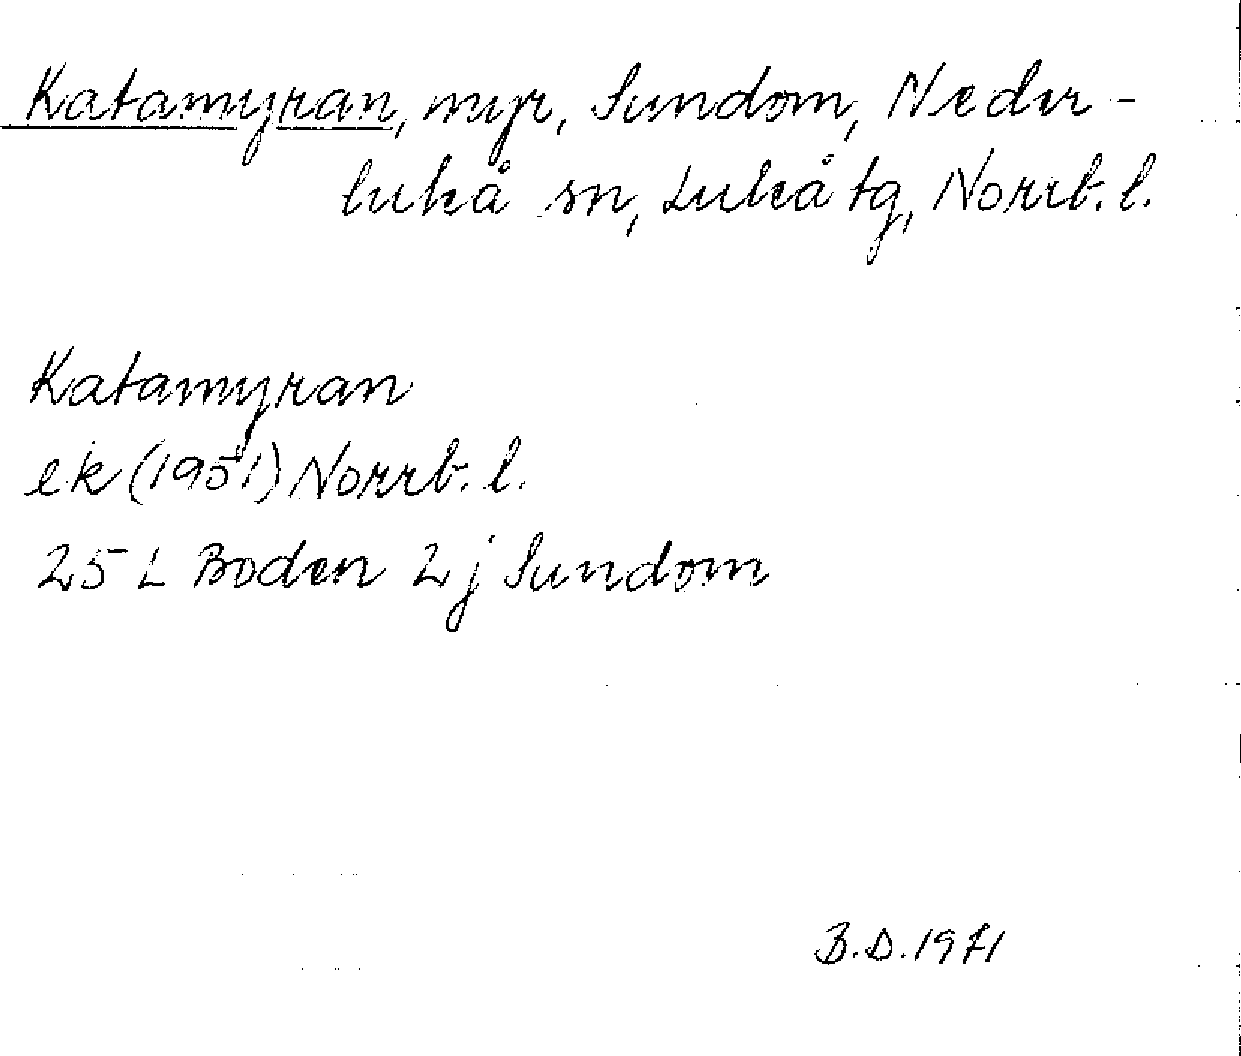 Katamyran, myr, Sundom, Neder-
luleå sn, Luleå tg, Norrb. l.
Katamyran
ek (1951) Norrb. l.
25 L Boden 2 j Sundom
B.D. 1971